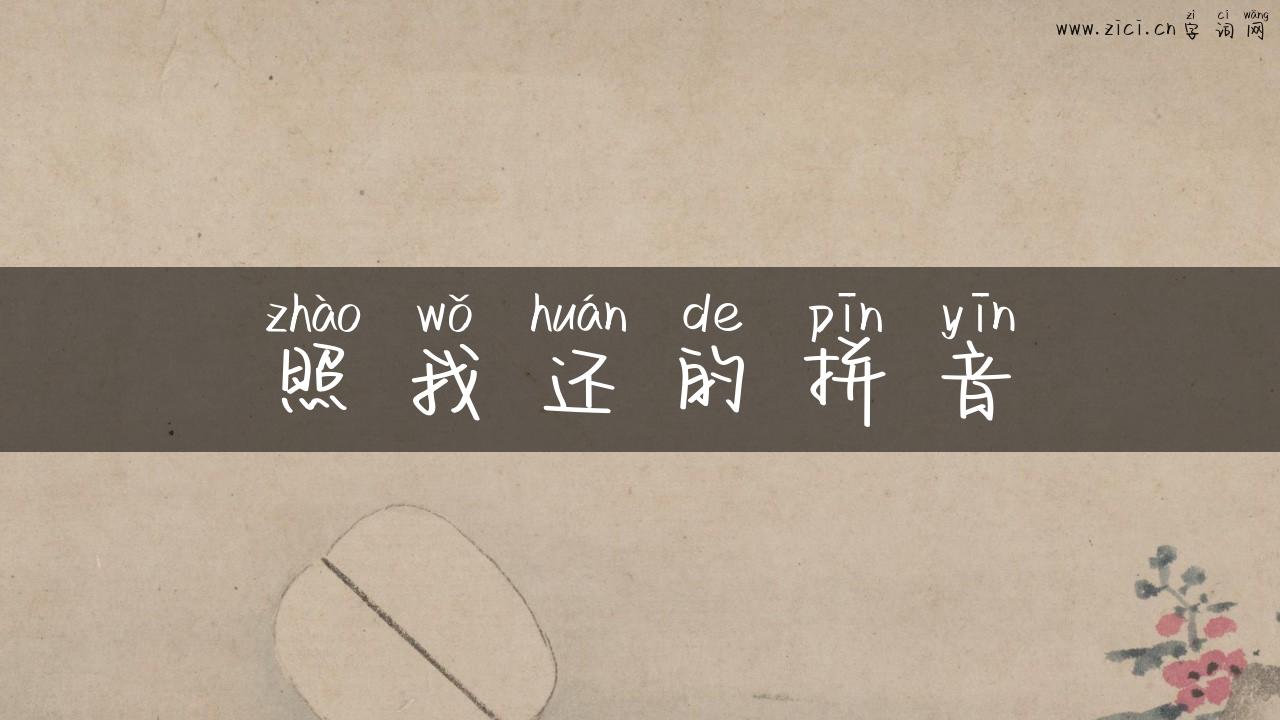 zì cí wǎng
www.zici.cn 字 词 网
zhào wǒ huán de pīn yīn
照 我 还 的 拼 音